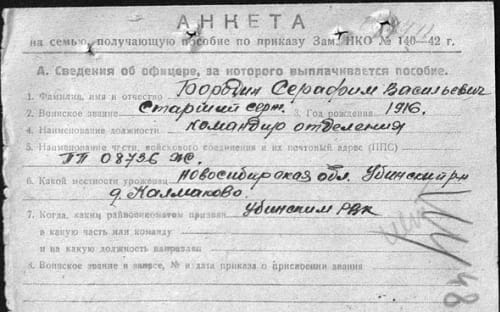 АНКЕТА
на семью, получающую пособие по приказу Зам. НКО № 140—42 г.
А. Сведения об офицере, за которого выплачивается пособие.
1. Фамилия, имя и отчество Бородин Серафим Васильевич
2. Воинское звание Старший серж. 3. Год рождения 1916.
4. Наименование должности командир отделения
5. Наименование части, войскового соединения и их почтовый адрес (ППС)
ПП 08736 Ж.
6. Какой местности уроженец Новосибирская обл. Убинский р-н
д. Колмаково.
7. Когда, каким райвоенкоматом призван Убинским РВК
в какую часть или команду
и на какую должность направлен
8. Воинское звание в запасе, № и дата приказа о присвоении звания
48